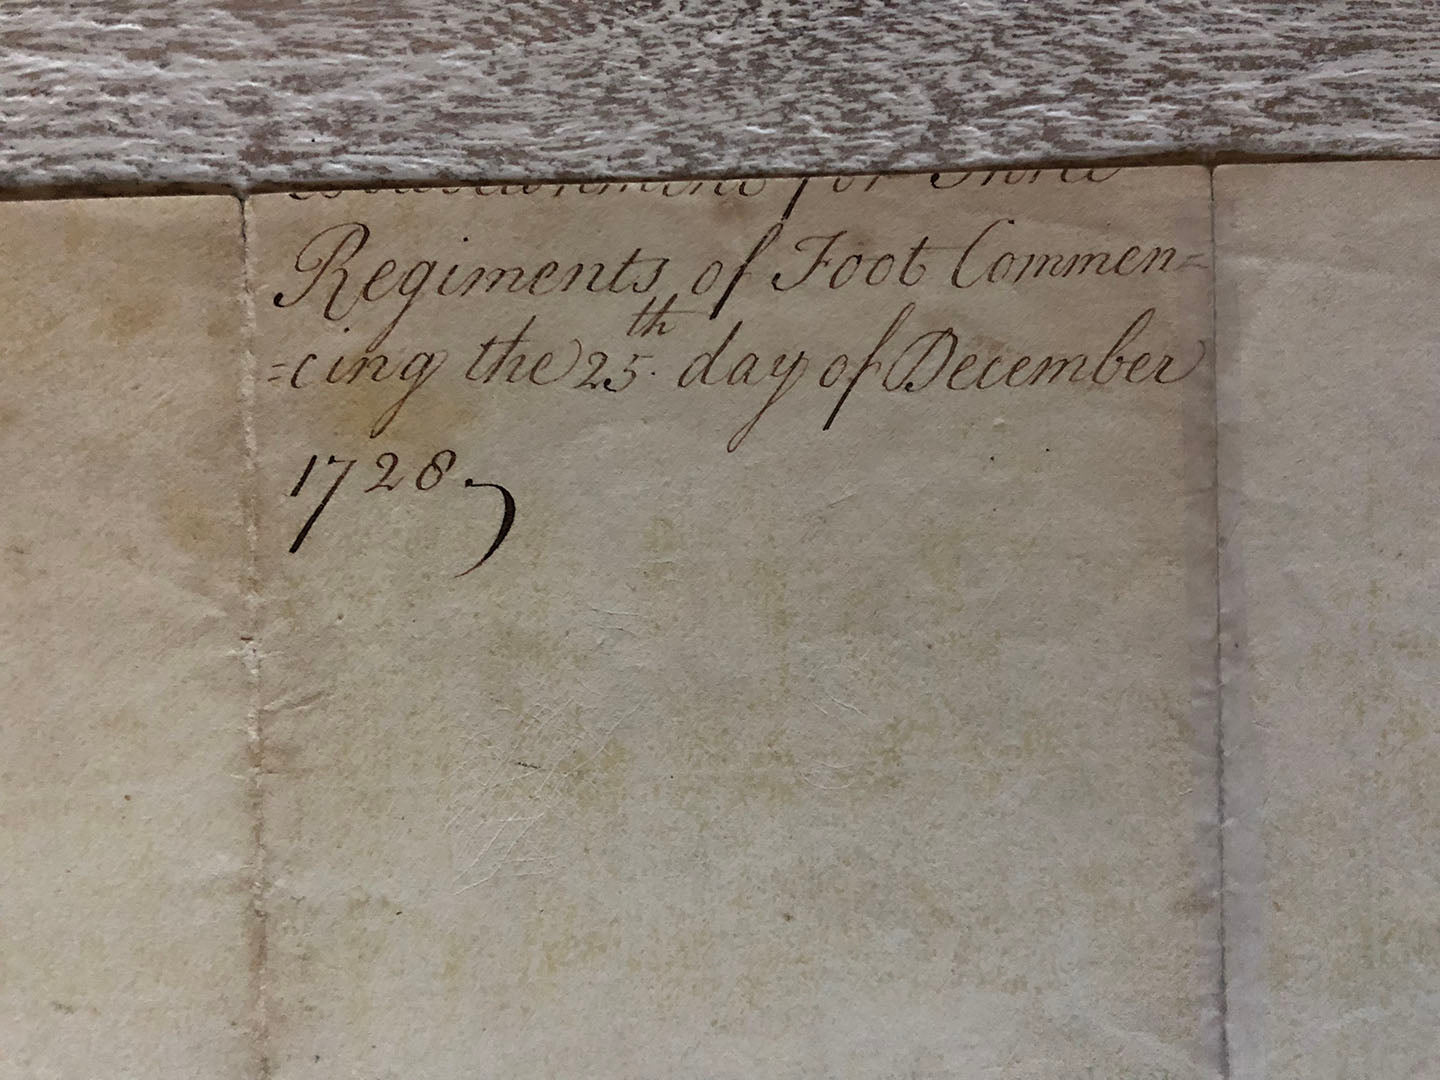 for Three
Regiments of Foot Commen=
=cing the 25.th day of December
1728